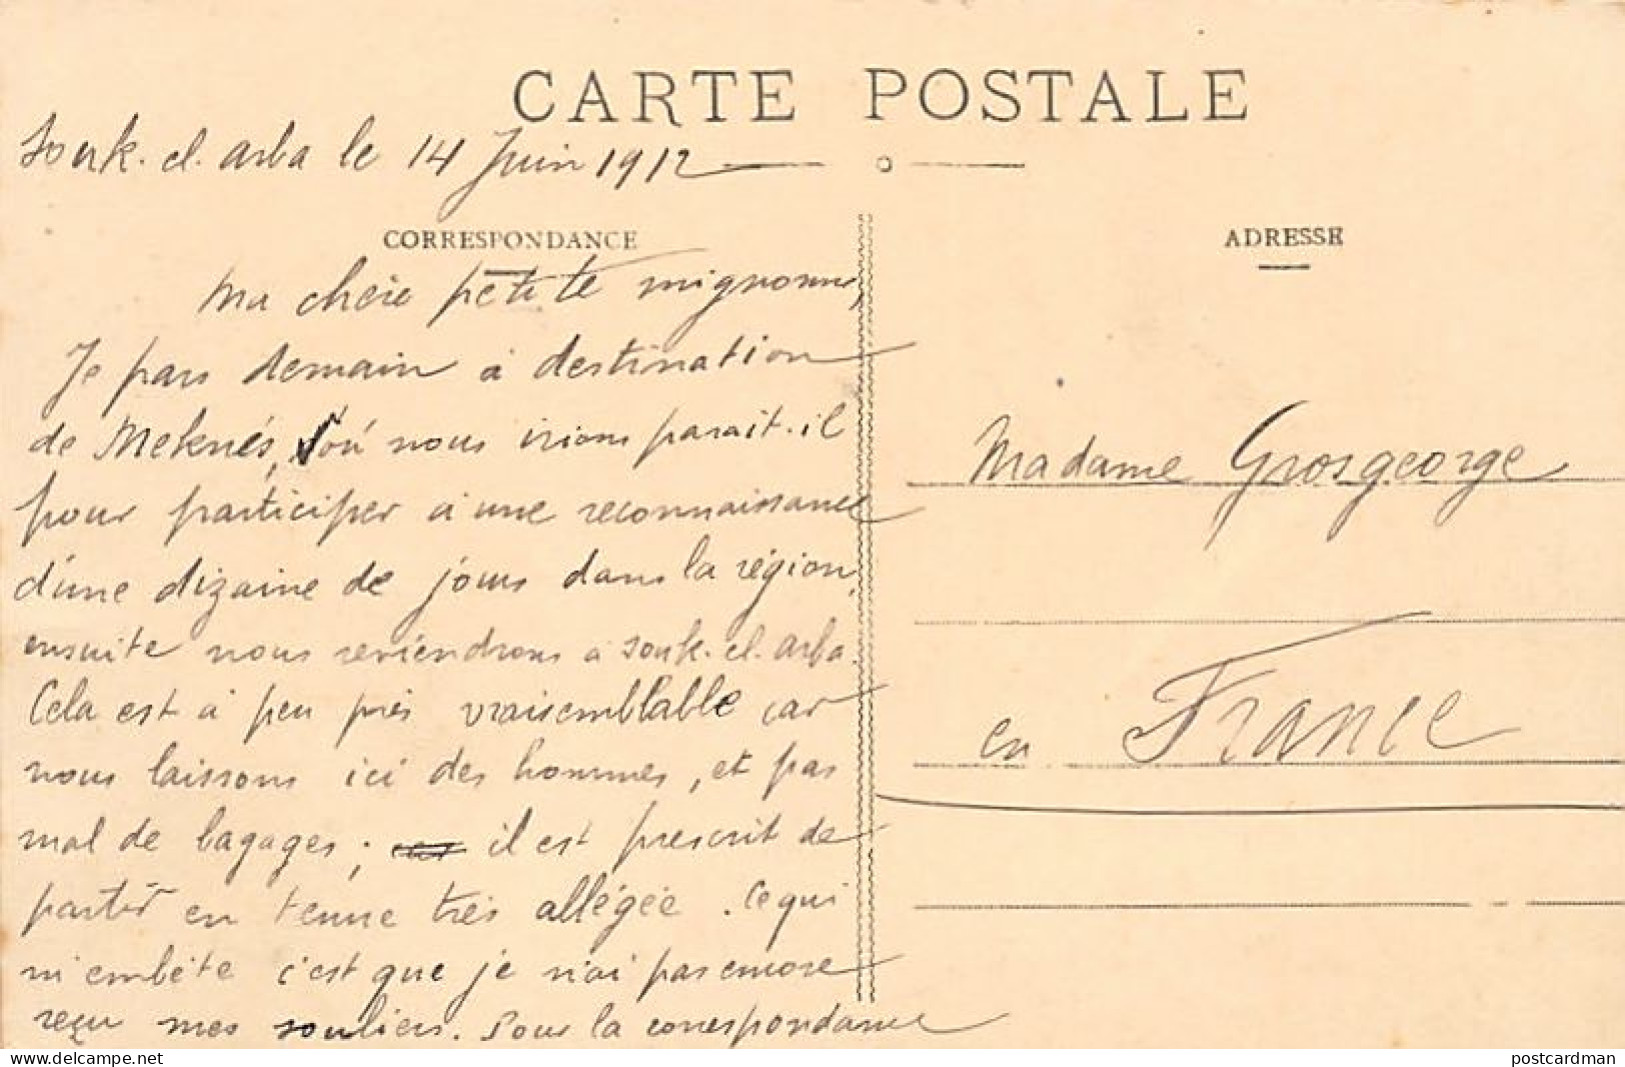 CARTE POSTALE
Souk. el. arba le 14 Juin 1912
CORRESPONDANCE
ADRESSE
Ma chère petite mignonne,
Je pars demain à destination
de Meknès, où nous irions parait-il
pour participer à une reconnaissance
d'une dizaine de jours dans la région,
ensuite nous reviendrons à souk. el. arba.
Cela est à peu près vraisemblable car
nous laissons ici des hommes, et pas
mal de bagages ; il est prescrit de
partir en tenue très allégée . Ce qui
m'embête c'est que je n'ai pas encore
reçu mes souliers. Pour la correspondance
Madame Grosgeorge
en France
postcardman
delcampe.net